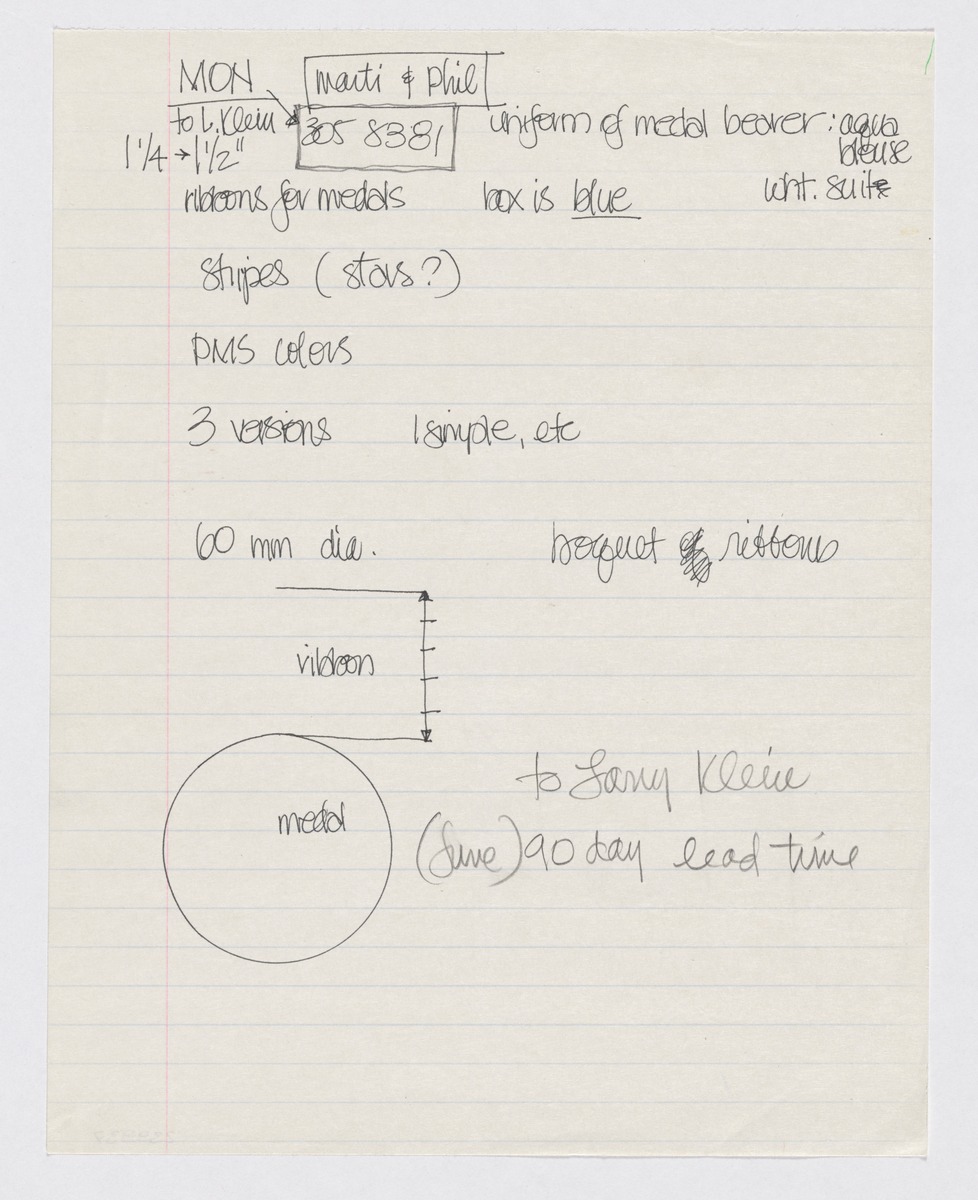 MON
marti & phil
to L. Klein
305 8381
uniform of medal bearer: aqua
blouse
1 1/4 → 1 1/2"
wht. suit
ribbons for medals
box is blue
stripes (stars?)
PMS colors
3 versions
1 simple, etc
60 mm dia.
boquet of ribbons
ribbon
medal
to Larry Klein
(June) 90 day lead time